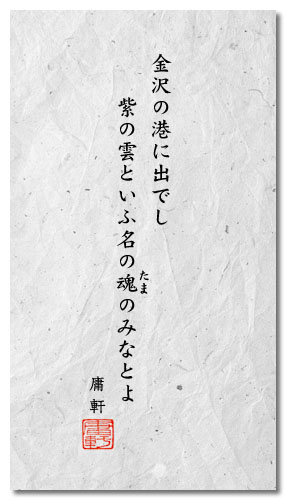 金沢の港に出でし
紫の雲といふ名の魂のみなとよ
たま
庸軒
庸軒